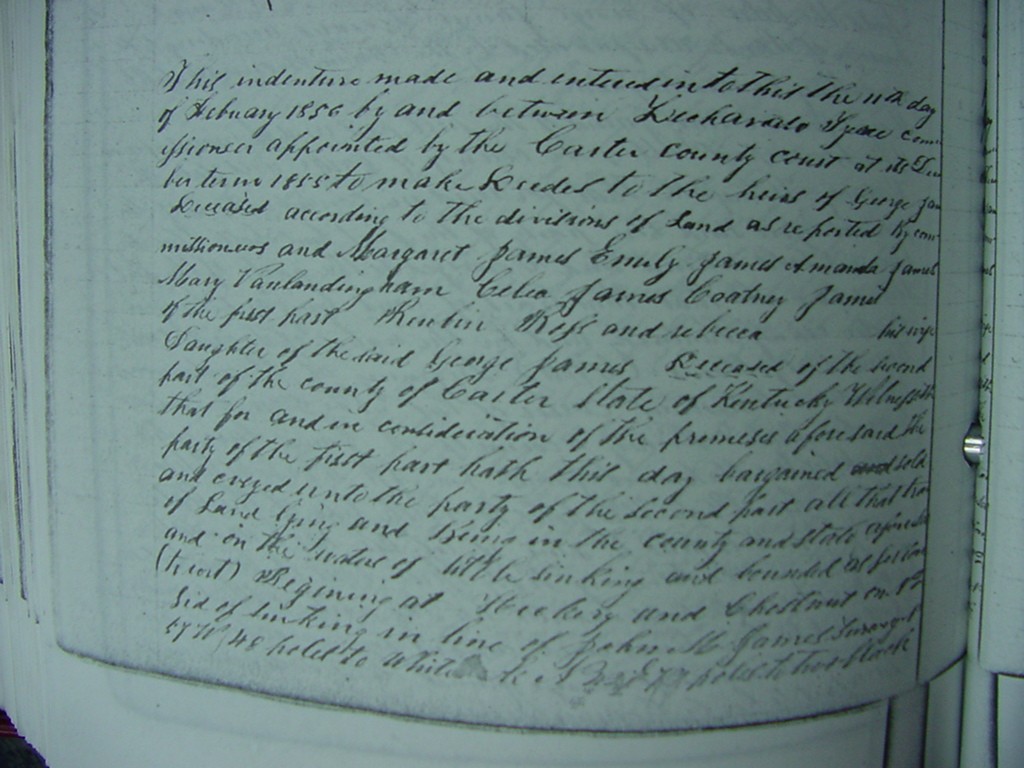 This indenture made and entered into this the 11th day
of Febuary 1856 by and between
issioner appointed by the Carter county court at its
ber term 1855 to make Deedes to the heirs of George
Deceased according to the divisions of Land as reported by com
missioners and Margaret James Emily James Amanda James
Mary Vanlandingham Celia James Coatney James
of the first part Reubin Ross and rebecca his wife
Daughter of the said George James Deceased of the second
part of the county of Carter State of Kentucky Witnesseth
that for and in consideration of the premises aforesaid the
party of the first part hath this day bargained and sold
and unto the party of the second part all that
of Land lying and Being in the county and state
and on the waters of little sinking and bounded as
(towit) Begining at Hickory and Chestnut on
sid of sinking in line of John M James
48 poles to White poles to two Black